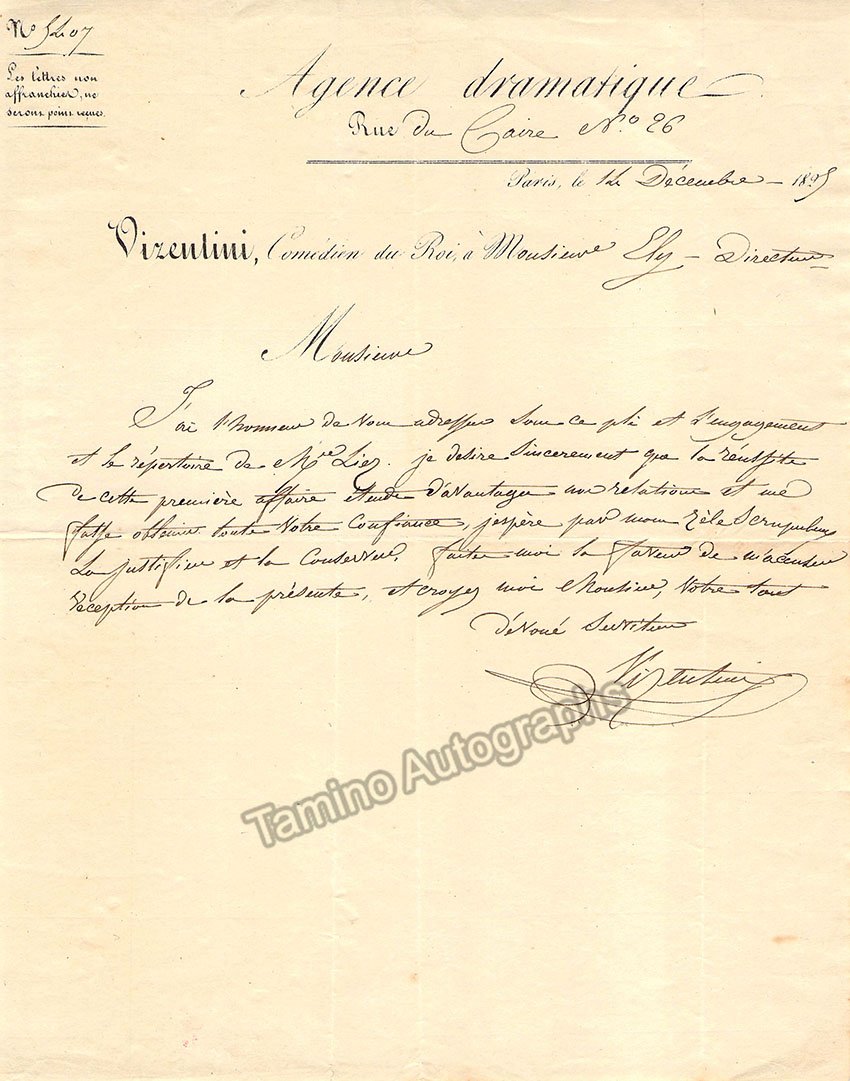 N° 5407
Les lettres non
affranchies, ne
seront point reçues.
Agence dramatique
Rue du Caire N° 26
Paris, le 14 Décembre 1825
Vizentini, Comédien du Roi, à Monsieur Ely Directeur
Monsieur
J'ai l'honneur de vous adresser sous ce pli et l'engagement
et le répertoire de Mr Liez. je desire sincerement que la réussite
de cette première affaire étende d'avantage nos relations et me
fasse obtenir toute votre Confiance, j'espère par mon zèle Scrupuleux
La justifier et la Conserver. faites moi la faveur de m'accuser
réception de la présente, et croyez moi Monsieur, Votre tout
dévoué Serviteur
Vizentini
Tamino Autographs